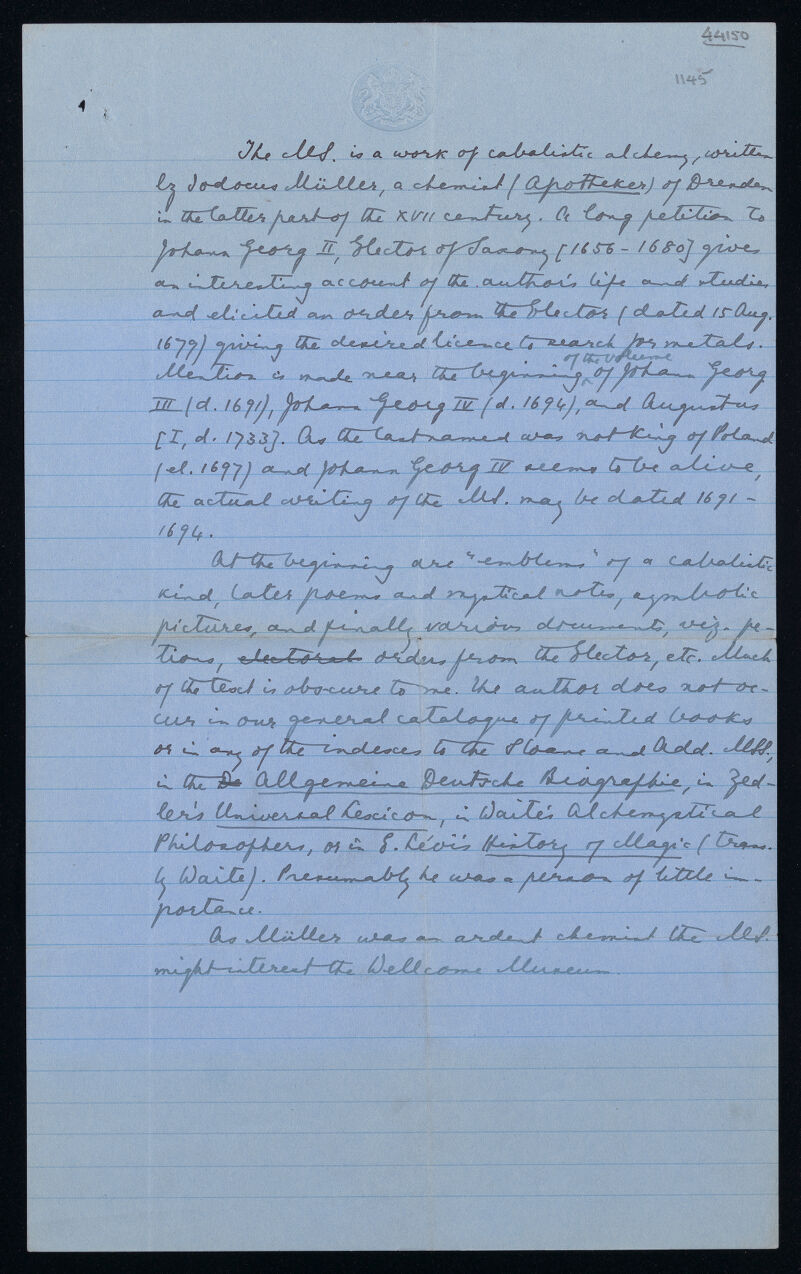 44150
1145
The MS. is a work of cabalistic alchemy, written
by Jodocus Müller, a chemist (Apotheker) of Dresden
in the latter part of the XVII century. A long petition to
Johann Georg II, Elector of Saxony [1656 – 1680] gives
an interesting account of the author's life and studies
and elicited an order from the Elector (dated 15 Aug.
1679) giving the desired licence to search for metals.
of the volume
Mention is made near the beginning ^ of Johann Georg
III (d. 1691), Johann Georg IV (d. 1694), and Augustus
[I, d. 1733]. As the last named was not King of Poland
(el. 1697) and Johann Georg IV seems to be alive,
the actual writing of the MS. may be dated 1691 –
1694.
At the beginning are "emblems" of a cabalistic
kind, later poems and mystical notes, symbolic
pictures, and finally various documents, viz. pe-
tions, electoral orders from the Elector, etc. Much
of the text is obscure to me. The author does not oc-
cur in our general catalogue of printed books
or in any of the indexes to the Sloane and Add. MSS.,
in the De Allgemeine Deutsche Biographie, in Zed-
ler's Universal Lexicon, in Waite's Alchemystical
Philosophers, or in E. Lévi's History of Magic (trans.
by Waite). Presumably he was a person of little im-
portance.
As Müller was an ardent chemist the MS.
might interest the Wellcome Museum.